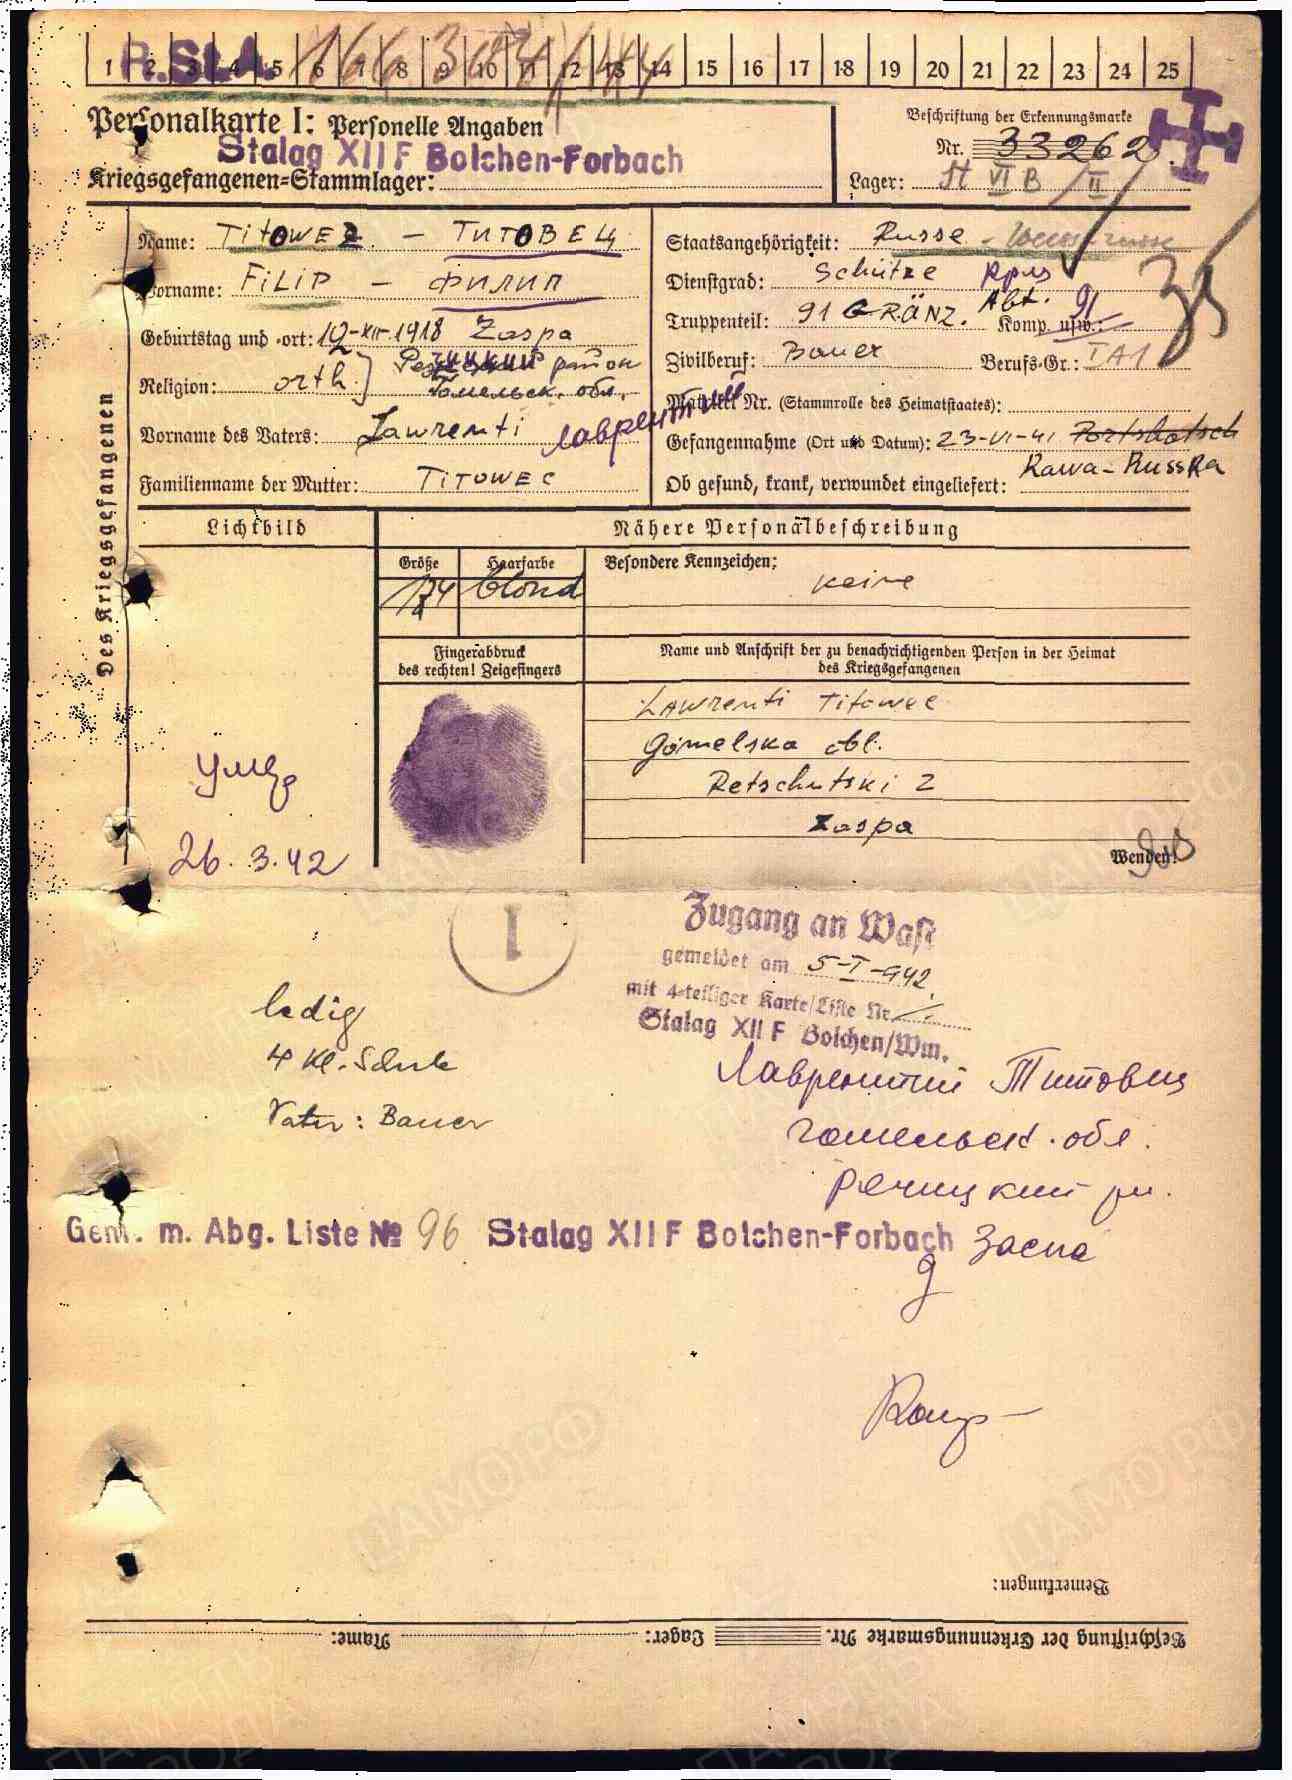 R.St.A. 166
1 2 3 4 5 6 7 8 9 10 11 12 13 14 15 16 17 18 19 20 21 22 23 24 25
Personalkarte I: Personelle Angaben
Stalag XII F Bolchen-Forbach
Kriegsgefangenen=Stammlager:
Beschriftung der Erkennungsmarke
Nr. 33262
Lager: St VI B / II
Des Kriegsgefangenen
Name: TiTOWEZ – ТИТОВЕЦ
Vorname: FiLiP – ФИЛИП
Geburtstag und =ort: 12-XII-1918 Zaspa
Речицкий район
Religion: orth. Гомельск. обл.
Vorname des Vaters: Lawrenti Лаврентий
Familienname der Mutter: TiTOWEC
Staatsangehörigkeit: Russe –
Dienstgrad: Schütze
Truppenteil: 91 GRÄNZ. Abt. 91 Komp. usw.:
Zivilberuf: Bauer Berufs=Gr.: I A 1
Matrikel Nr. (Stammrolle des Heimatstaates):
Gefangennahme (Ort und Datum): 23-VI-41
Rawa-Russka
Ob gesund, krank, verwundet eingeliefert:
Lichtbild
Nähere Personalbeschreibung
Größe Haarfarbe Besondere Kennzeichen:
174 blond keine
Fingerabdruck
des rechten! Zeigefingers
Name und Anschrift der zu benachrichtigenden Person in der Heimat
des Kriegsgefangenen
Lawrenti Titowec
Gomelska obl.
Retschutski 2
Zaspa
умер
26.3.42
Wenden!
1
Zugang an Wast
gemeldet am 5-I-942
mit 4-teiliger Karte/Liste Nr. /.
Stalag XII F Bolchen/Wm.
ledig
4 Kl. Schule
Vater: Bauer
Лаврентий Титовец
гомельск. обл.
речицкий рн.
Gem. m. Abg. Liste № 96 Stalag XII F Bolchen-Forbach
д Заспа
Bemerkungen:
Beschriftung der Erkennungsmarke Nr. Lager: Name: